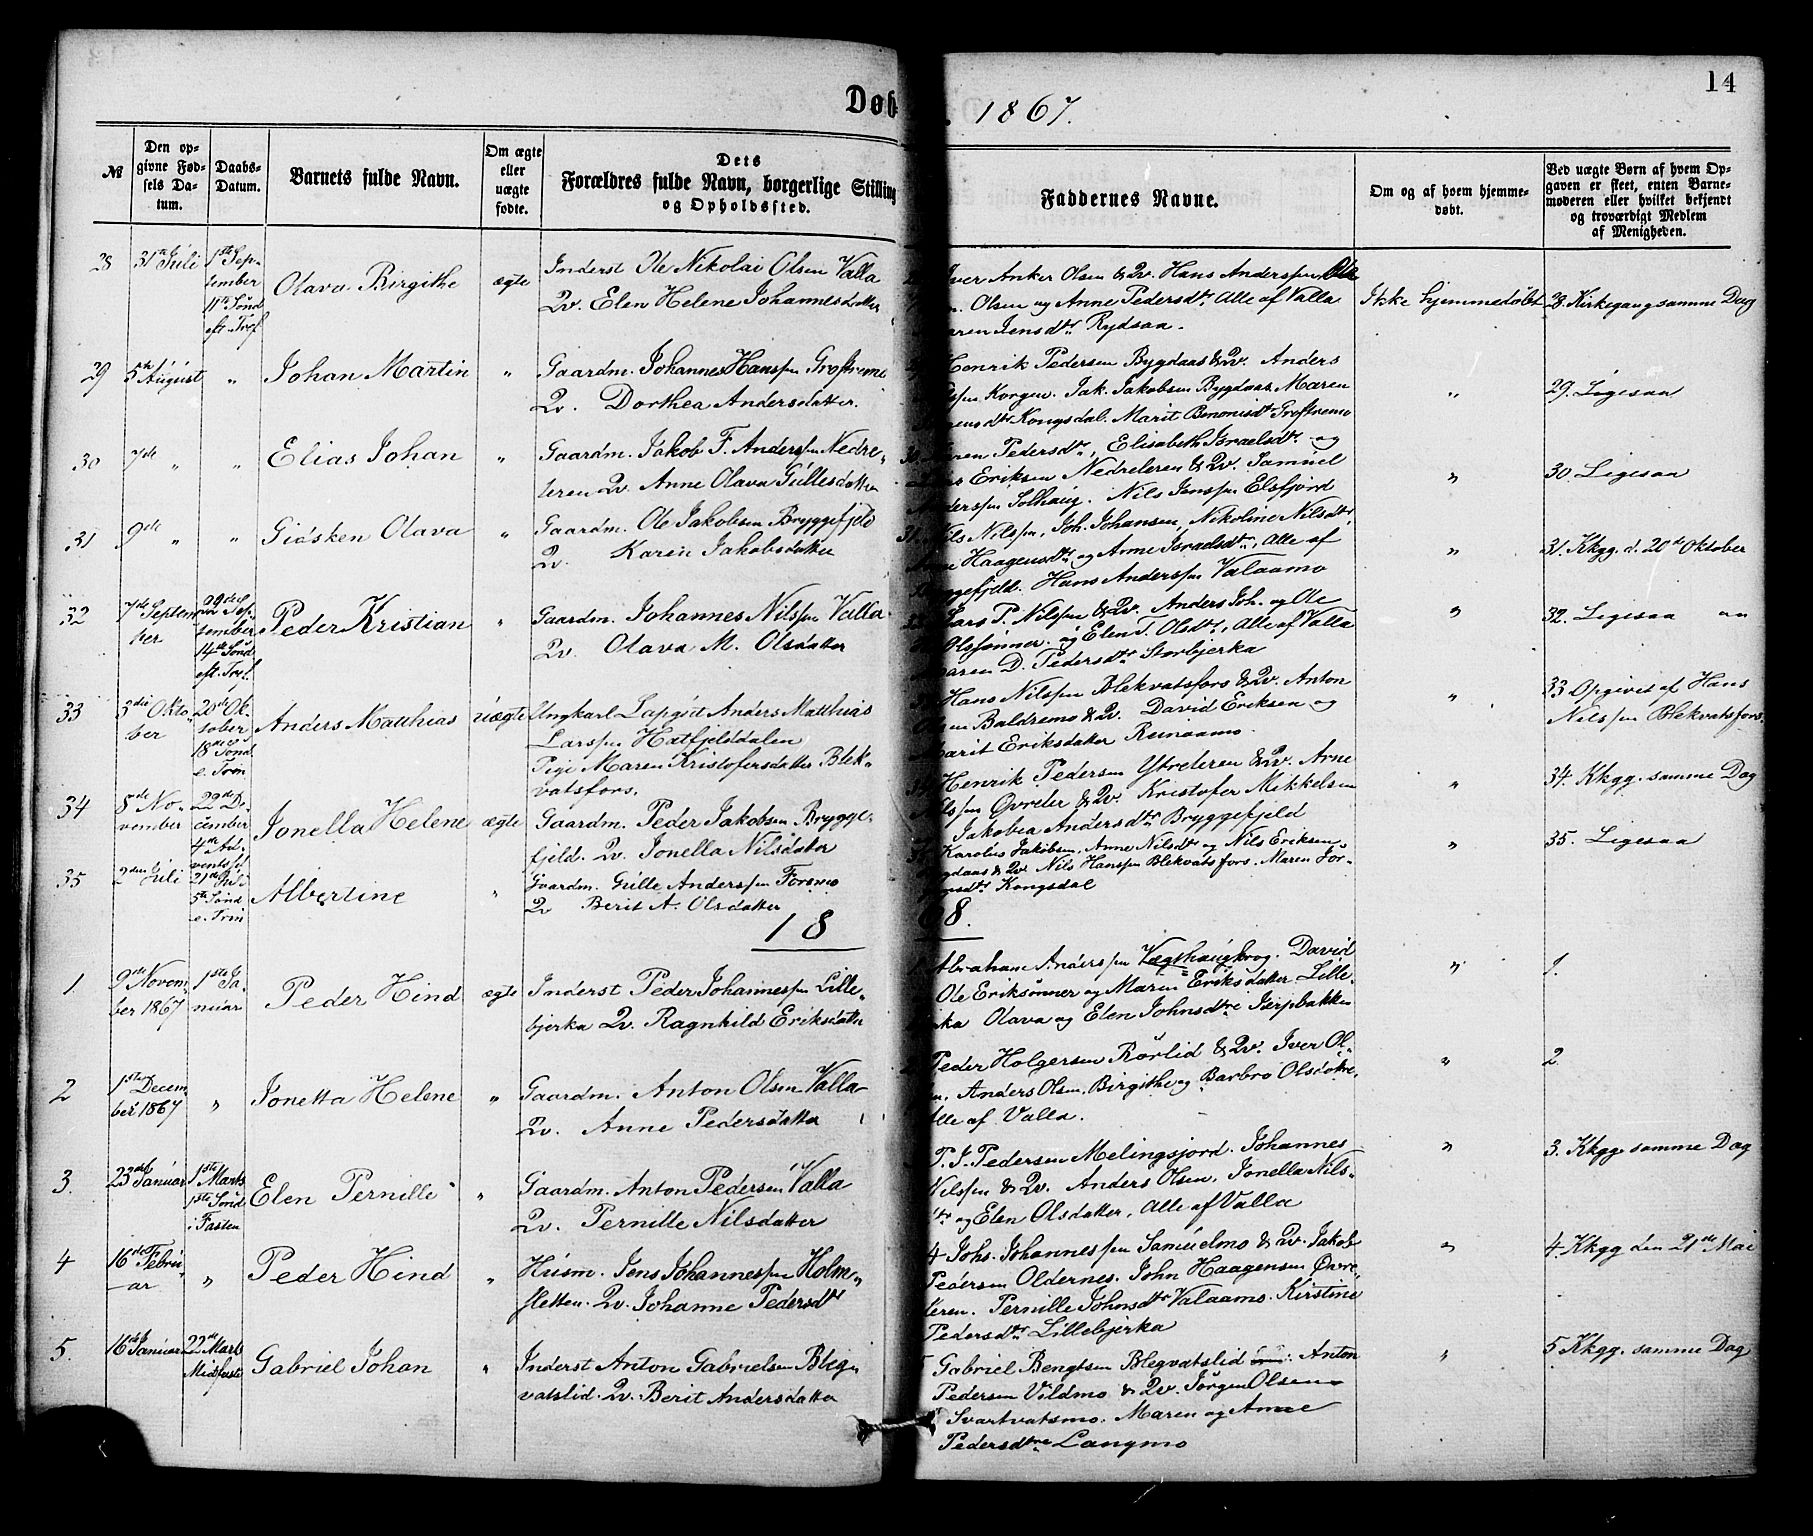 14
Døb
1867.
№
Den op-
givne Fød-
sels Da-
tum.
Daabs-
Datum.
Barnets fulde Navn.
Om ægte
eller
uægte
fødte.
Dets
Forældres fulde Navn, borgerlige Stilling
og Opholdssted.
Faddernes Navne.
Om og af hvem hjemme-
døbt.
Ved uægte Børn af hvem Op-
gaven er skeet, enten Barne-
moderen eller hvilket bekjendt
og troværdigt Medlem
af Menigheden.
28
31te Juli
1ste Sep-
tember
11te Sønd
eft. Tref.
Olava Birgithe
ægte
Inderst Ole Nikolai Olsen Valla
Qv. Elen Helene Johannesdatter
Iver Anker Olsen & Qv. Hans Anderssen Ole
Olsen og Anne Pedersdtr. Alle af Valla
aren Jensdtr Rydsaa.
Ikke hjemmedøbt
28. Kirkegang samme Dag
29
5te August
"
Johan Martin
"
Gaardm. Johannes Hanssen Groftremo
Qv. Dorthea Andersdatter.
Henrik Pedersen Bygdaas & Qv. Anders
Korgen. Jak. Jakobsen Bygdaas. Maren
Kongsdal. Marit Benonisdtr Groftremo
"
29. Ligesaa
30
7de "
"
Elias Johan
"
Gaardm. Jakob F. Anderssen Nedre-
leren Qv. Anne Olava Gullesdatter
Pedersdtr, Elisabeth Israelsdtr. og
Eriksen Nedreleren & Qv. Samuel
Anderssen Solhaug. Nils Jenssen Elsfjord
"
30. Ligesaa
31
9de "
"
Giøsken Olava
"
Gaardm. Ole Jakobsen Bryggefjeld
Qv. Karen Jakobsdatter
31. Nils Nilssen, Joh. Johansen, Nikoline Nilsdtr,
Haagensdtr og Anne Israelsdtr, Alle af
Bryggefjeld. Hans Anderssen Valaamo
"
31. Kkgg. d. 20de Oktober
32
7de Septem
ber
29de Sep-
tember
14de Sønd
eft. Tref.
Peder Kristian
"
Gaardm. Johannes Nilssen Valla
Qv. Olava M. Olsdatter
Lars P. Nilssen & Qv. Anders Joh. og Ole
Olssønner. og Elen T. Olsdtr, Alle af Valla
aren D. Pedersdtr Storbjerka
"
32. Ligesaa
33
3die Okto
ber
20de Ok-
tober
18de Sønd
e. Trin
Anders Matthias
uægte
Ungkarl Lapgut Anders Matthias
Larssen Hatfjelddalen
Pige Maren Kristofersdatter Blek-
vatsfors.
Hans Nilssen Blekvatsfors & Qv. Anton
Baldremo & Qv. David Eriksen og
Marit Eriksdatter Reinaamo.
"
33 Opgivet af Hans
Nilssen Blekvatsfors.
34
8de No-
vember
22de De-
cember
4de Ad-
vents s.
Jonella Helene
ægte
Gaardm. Peder Jakobsen Brygge-
fjeld. Qv. Jonella Nilsdatter
Henrik Pedersen Ytreleren & Qv. Arne
Nilssen Øvreler & Qv. Kristofer Mikkelsen
Jakobea Andersdtr Bryggefjeld
"
34. Kkgg. samme Dag
35
2den Juli
21de Juli
5te Sønd
e. Trin
Albertine
"
Gaardm. Gulle Anderssen Forsmo
Qv Berit A. Olsdatter
Karolus Jakobsen, Anne Nilsdtr og Nils Eriksen
Bygdaas & Qv Nils Hanssen Blekvatsfors. Maren Jør-
gensdtr Kongsdal
"
35. Ligesaa
18
68.
1
9de Novem
ber 1867
1ste Ja-
nuar
Peder Hind
ægte
Inderst Peder Johannessen Lille-
bjerka Qv. Ragnhild Eriksdatter
Abraham Anderssen Vægthaugkrog. David
Ole Eriksønner og Maren Eriksdatter Lille-
Olava og Elen Johnsdtre Jerpbakken
"
1.
2
1ste Decem
ber 1867
"
Jonetta Helene
"
Gaardm. Anton Olsen Valla
Qv. Anne Pedersdatter
Peder Holgersen Rørlid & Qv. Iver Ol-
Anders Olsen. Birgithe og Barbro Olsdøtre.
Alle af Valla.
"
2
3.
23de Januar
1ste Marts
1ste Sønd
i Fasten
Elen Pernille
"
Gaardm. Anton Pedersen Valla
Qv. Pernille Nilsdatter
P. J. Pedersen Melingsjord. Johannes
Nilssen & Qv. Anders Olsen, Jonella Nils-
dtr og Elen Olsdatter, Alle af Valla
"
3. Kkgg samme Dag
4
16de Febru
ar
"
Peder Hind
"
Husm. Jens Johannessen Holm-
sletten. Qv. Johanne Pedersdtr
4 Johs. Johannessen Samuelmo & Qv. Jakob
Pedersen Oldernes. John Haagensen Øvre-
leren. Pernille Johnsdtr Valaamo. Kirstine
Pedersdtr Lillebjerka
"
4. Kkgg den 21de Mai
5.
16de Januar
22de Marts
Midfaste
Gabriel Johan
"
Inderst Anton Gabrielsen Bleg-
vatslid. Qv. Berit Andersdatter
Gabriel Bengtsen Blegvatslid Anton
Pedersen Vildmo & Qv. Jørgen Olsen
Svartvatsmo. Maren og Anne
Pedersdtre Langmo
"
5 Kkgg. samme Dag